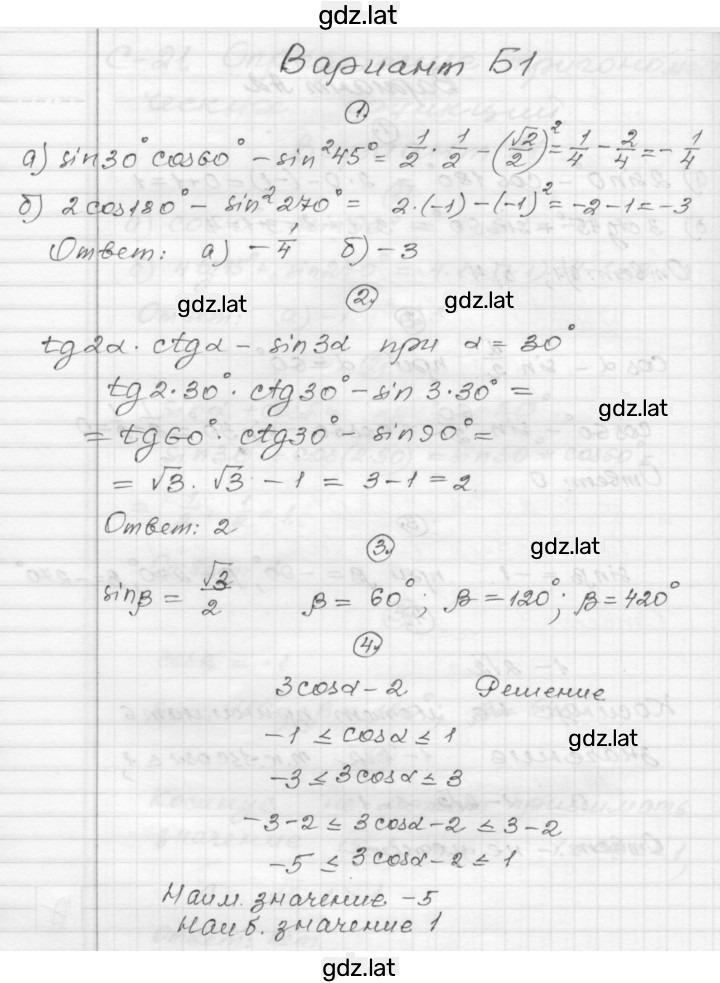 gdz.lat
Вариант Б1
1.
а) sin30° cos60° − sin²45° = 1/2 · 1/2 − (√2/2)² = 1/4 − 2/4 = − 1/4
б) 2cos180° − sin²270° = 2·(−1) − (−1)² = −2−1 = −3
Ответ: а) −1/4 б) −3
2.
gdz.lat gdz.lat
tg2α · ctgα − sin3α при α = 30°
tg2·30° · ctg30° − sin3·30° =
gdz.lat
= tg60° · ctg30° − sin90° =
= √3 · √3 − 1 = 3−1 = 2
Ответ: 2
3.
gdz.lat
sinβ = √3/2 β = 60°; β = 120°; β = 420°
4.
3cosα − 2 Решение
−1 ≤ cosα ≤ 1
gdz.lat
−3 ≤ 3cosα ≤ 3
−3−2 ≤ 3cosα−2 ≤ 3−2
−5 ≤ 3cosα−2 ≤ 1
Наим. значение −5
Наиб. значение 1
gdz.lat